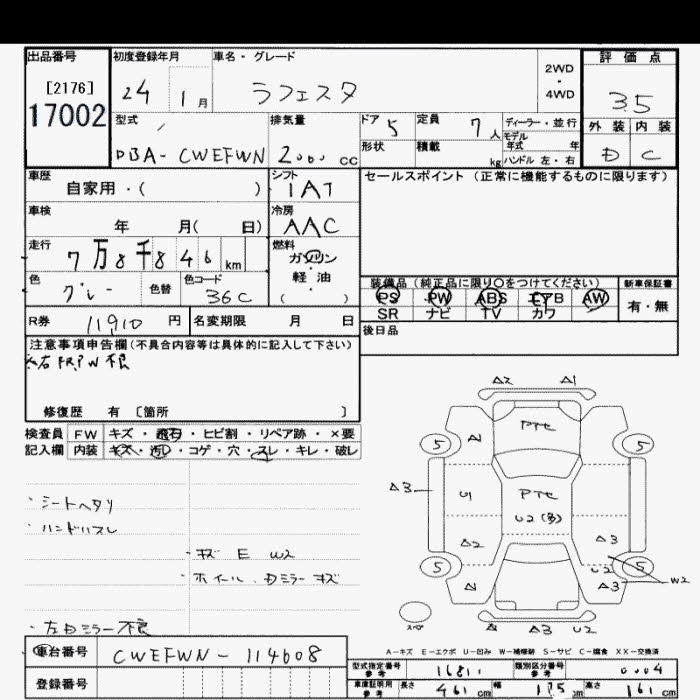 出品番号 初度登録年月 車名・グレード 評価点
[2176] 24 1月 ラフェスタ 2WD ・ 4WD 3.5
17002
型式 排気量 ドア 5 定員 7人 ディーラー・並行 外装 内装
DBA-CWEFWN 2000cc 形状 積載 kg モデル年式 年 ハンドル 左・右 D C
車歴 シフト セールスポイント(正常に機能するものに限ります)
自家用・( ) IAT
車検 冷房
年 月( 日) AAC
走行 燃料
7万8千846km ガソリン
軽・油
( )
色 色替 色コード 装備品(純正品に限り○をつけてください) 新車保証書
グレー 36C PS PW ABS エアB AW 有・無
SR ナビ TV カワ
R券 11910円 名変期限 月 日 後日品
注意事項申告欄(不具合内容等は具体的に記入して下さい)
左右FRPW不良
修復歴 有 〔箇所 〕
検査員 FW キズ・飛石・ヒビ割・リペア跡・×要
記入欄 内装 キズ・汚レ・コゲ・穴・スレ・キレ・破レ
・シートヘタリ
・ハンドルスレ
・キズ E W2
・ホイール、Dミラーキズ
・左Dミラー不良
A2 A1
Pテc
5 A1 5
A3 U1 Pテc
U2(多)
A2 A3
5 U2 5 W2
A1 A3
スペア A1 A3 U2
A-キズ E-エクボ U-凹み W-補修跡 S-サビ C-腐食 XX-交換済
車台番号 CWEFWN-114608
登録番号
型式指定番号 参考 1681 類別区分番号 参考 0004
車庫証明用 参考 長さ 461cm 幅 175cm 高さ 161cm